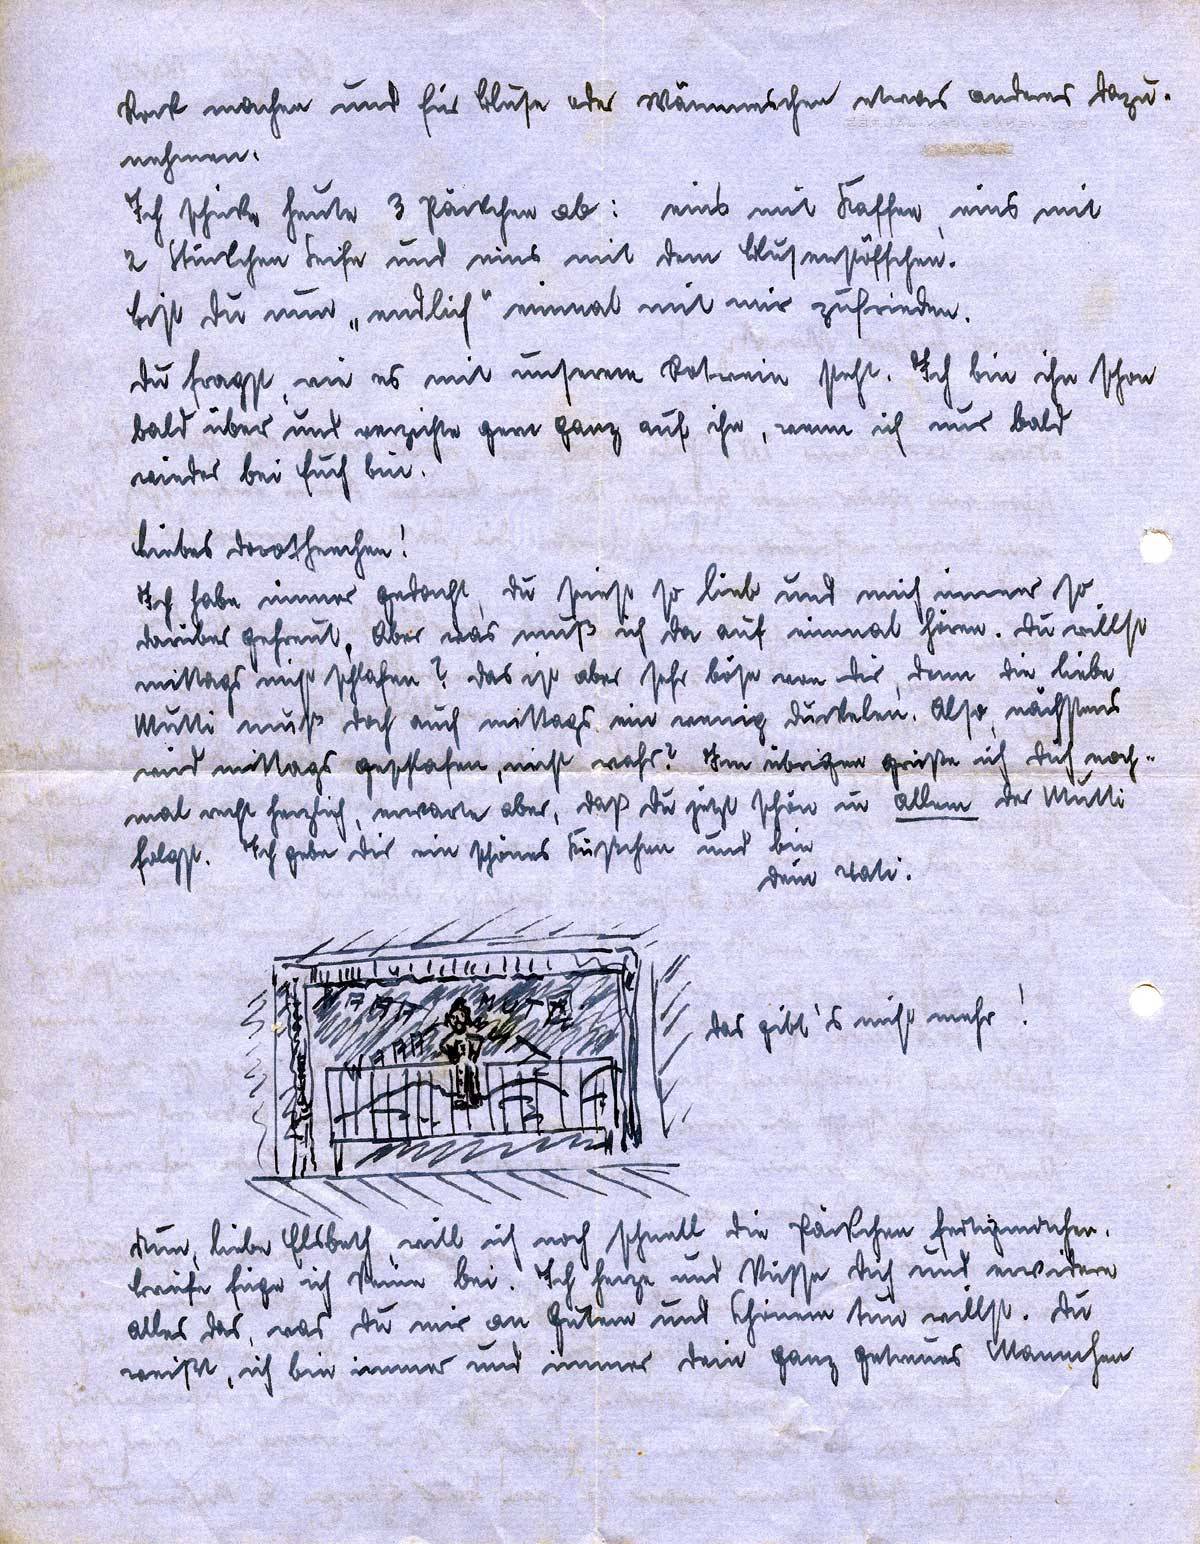 Rock machen und für Bluse oder Wämmeschen etwas anderes dazu-
nehmen.
Ich schicke heute 3 Päckchen ab: eins mit Kaffee, eins mit
2 Stückchen Seife und eins mit dem Blusenstöffchen.
Bist Du nun „endlich" einmal mit mir zufrieden.
Du fragst, wie es mit unserem Rotwein steht. Ich bin ihn schon
bald über und verzichte gern ganz auf ihn, wenn ich nur bald
wieder bei Euch bin.
Liebes Dorotheechen!
Ich habe immer gedacht, Du seiest so lieb und mich immer so
darüber gefreut. Aber was muß ich da auf einmal hören. Du willst
mittags nicht schlafen? Das ist aber sehr böse von Dir, denn die liebe
Mutti muß doch auch mittags ein wenig duckelen. Also, nächstens
wird mittags geschlafen, nicht wahr? Im übrigen grüße ich Dich noch-
mal recht herzlich, erwarte aber, daß Du jetzt schön in allem der Mutti
folgst. Ich gebe Dir ein schönes Küßchen und bin
Dein Vati.
Das gibt's nicht mehr!
Nun, liebe Elsbeth, will ich noch schnell die Päckchen fertigmachen.
Briefe füge ich keine bei. Ich herze und küsse Dich und erwidere
alles das, was Du mir an Gutem und Schönem tun willst. Du
weißt, ich bin immer und immer Dein ganz getreues Mannchen